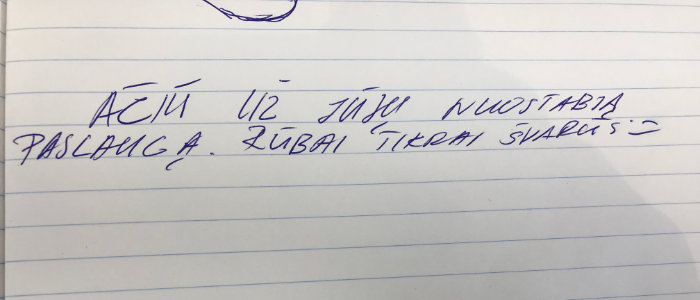 AČIŪ UŽ JŪSŲ NUOSTABIĄ
PASLAUGĄ. RŪBAI TIKRAI ŠVARŪS :=